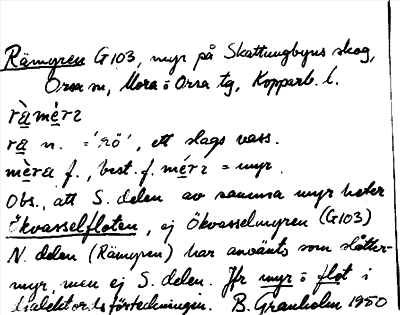 Rämyren G103, myr på Skattungbyns skog,
Orsa sn, Mora o Orsa tg, Kopparb. l.
rà mérz
ra n. = 'rö', ett slags vass.
mèra f., best. f. mérz = myr.
Obs., att S. delen av samma myr heter
Ökvasselfloten, ej Ökvasselmyren (G103)
N. delen (Rämyren) har använts som slåtter-
myr, men ej S. delen. Jfr myr o flot i
dialektordsförteckningen. B. Granholm 1950